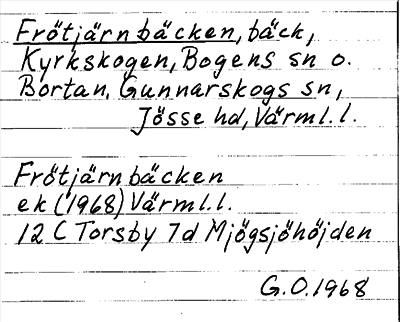 Frötjärnbäcken, bäck,
Kyrkskogen, Bogens sn o.
Bortan, Gunnarskogs sn,
Jösse hd, Värml. l.
Frötjärnbäcken
ek (1968) Värml. l.
12 C Torsby 7d Mjögsjöhöjden
G.O.1968